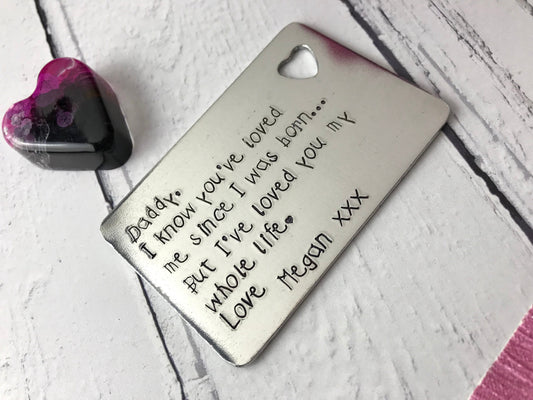 Daddy.
I know you've loved
me since I was born...
But I've loved you my
whole life♥
Love Megan xxx